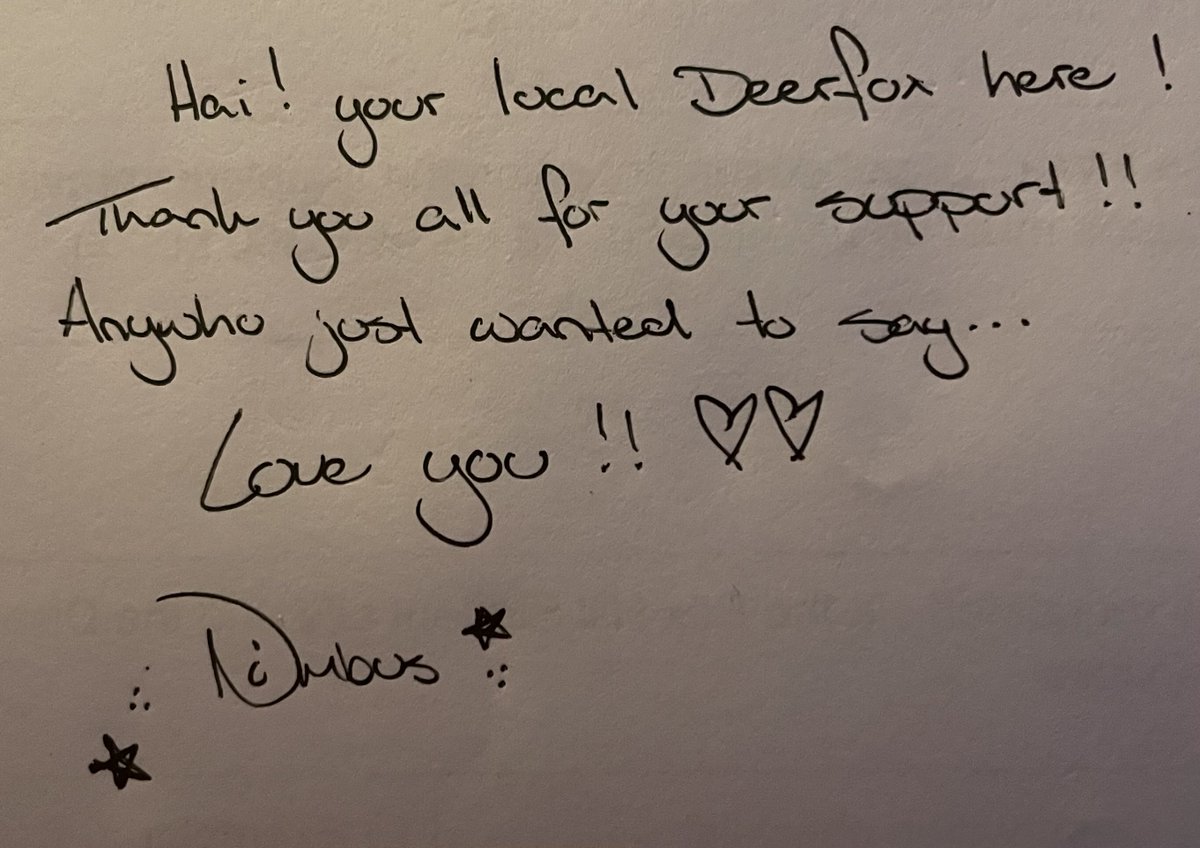 Hai! your local Deerfox here!
Thank you all for your support!!
Anywho just wanted to say...
Love you!! ♡♡
Nimbus